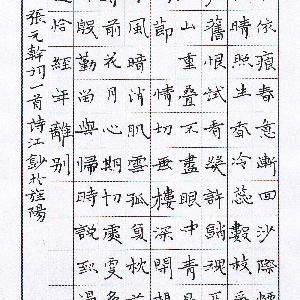 依痕春意漸回沙際煙
晴照生香冷蕊數枝爭
舊恨試看幾許銷魂
山重疊不盡眼中青
節情切畫樓深閉
風暗消肌雪孤負枕
前花月心期切處更
殷勤留與歸時說到得
恰經年離別
張元幹詞一首詩江鈔於旌陽